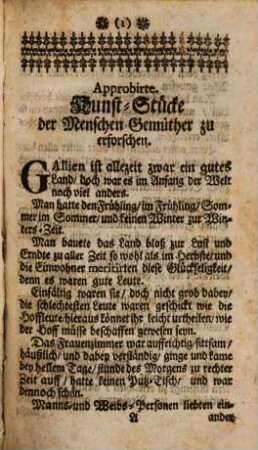 (1)
Approbirte
Kunst-Stücke
der Menschen Gemüther zu
erforschen.
GAllien ist allezeit zwar ein gutes
Land/ doch war es im Anfang der Welt
noch viel anders.
Man hatte den Frühling/ im Frühling/ Som-
mer im Sommer/ und keinen Winter zur Win-
ters-Zeit.
Man bauete das Land bloß zur Lust und
Erndte zu aller Zeit so wohl als im Herbste/ und
die Einwohner meritirten diese Glückseligkeit/
denn es waren gute Leute.
Einfältig waren sie/ doch nicht grob dabey/
die schlechtesten Leute waren geschickt wie die
Hoffleute hieraus könnet ihr leicht urtheilen/ wie
der Hoff müsse beschaffen gewesen seyn.
Das Frauenzimmer war auffrichtig/ sittsam/
häußlich/ und dabey verständig/ ginge und kame
bey hellem Tage/ stunde des Morgens zu rechter
Zeit auff/ hatte keinen Putz-Tisch/ und war
dennoch schön.
Manns- und Weibs-Personen liebten ein-
A ander